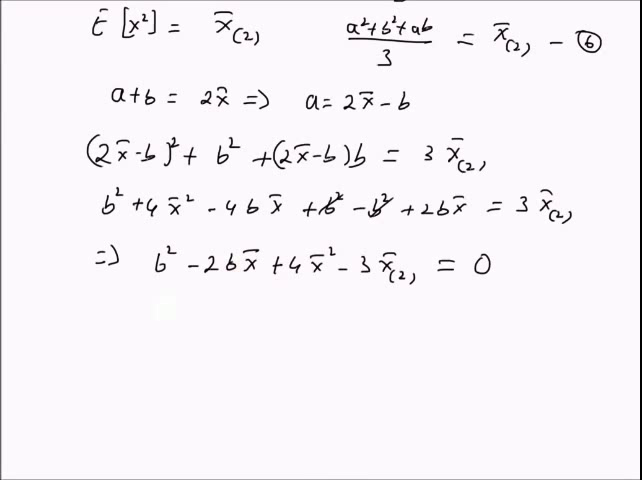 E[x²] = x̄₍₂₎   (a²+b²+ab)/3 = x̄₍₂₎ - ⑥
a+b = 2x̄ => a = 2x̄ - b
(2x̄-b)² + b² + (2x̄-b)b = 3x̄₍₂₎
b² + 4x̄² - 4bx̄ + b² - b² + 2bx̄ = 3x̄₍₂₎
=> b² - 2bx̄ + 4x̄² - 3x̄₍₂₎ = 0